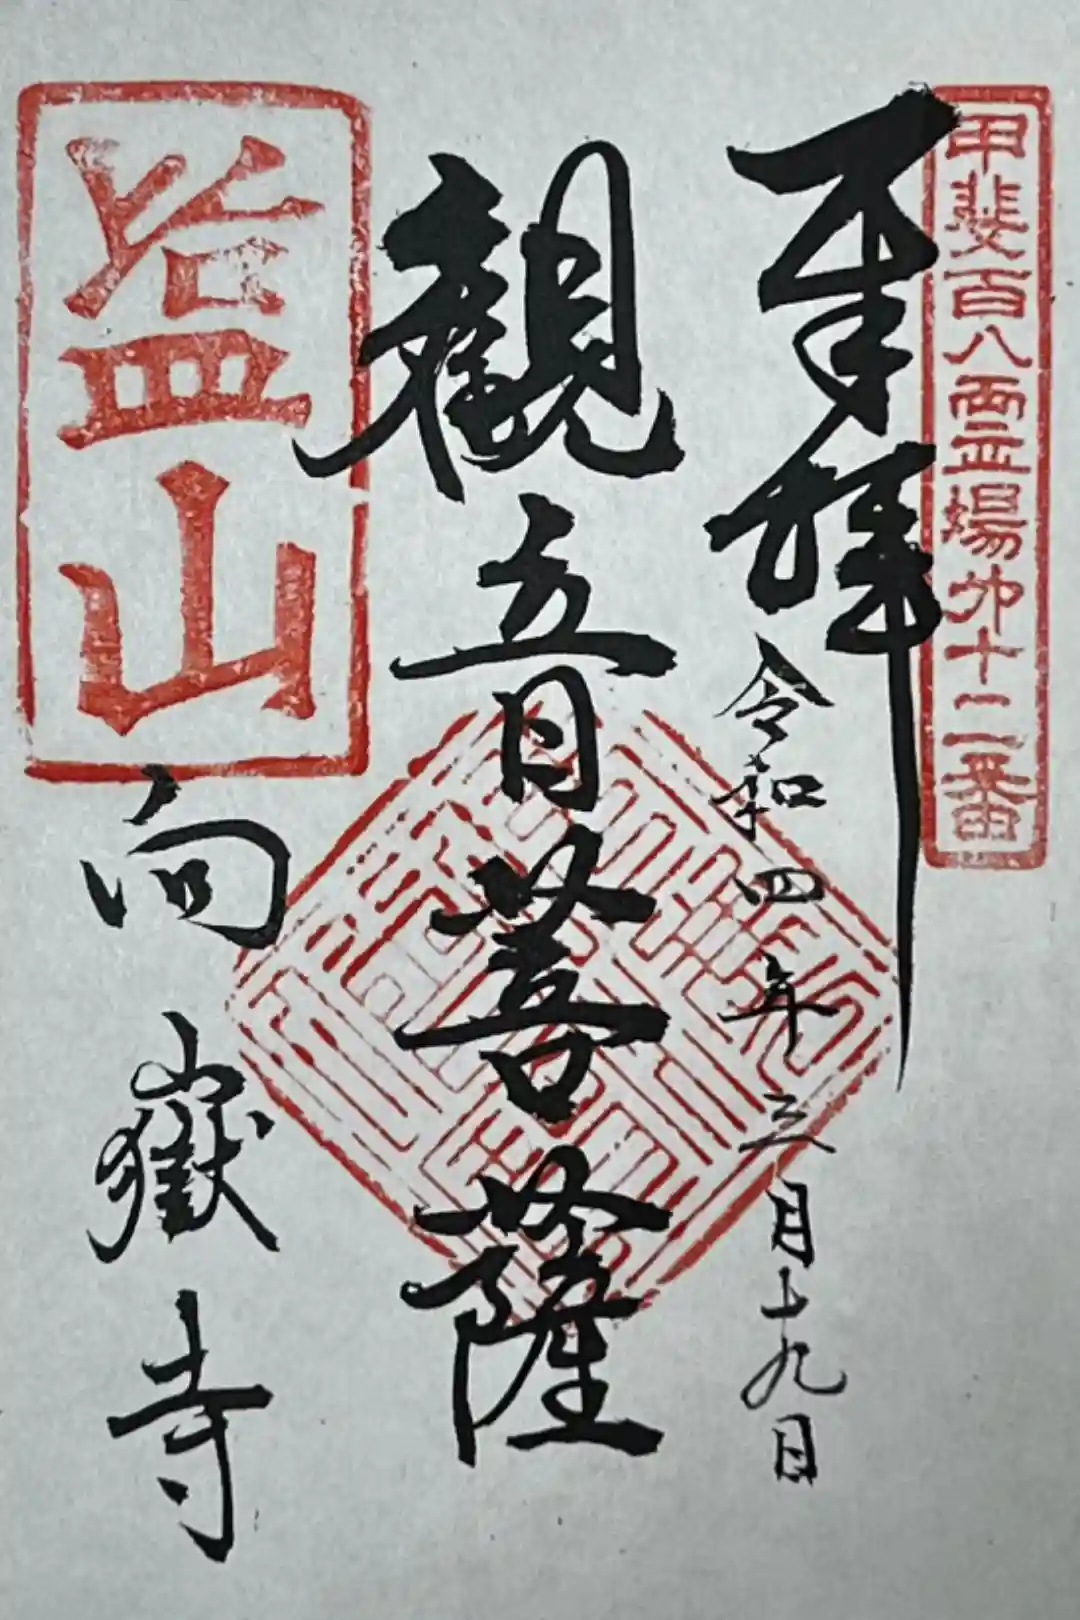 甲斐百八霊場第十二番
奉拝 令和四年三月十九日
観音菩薩
塩山
向嶽寺